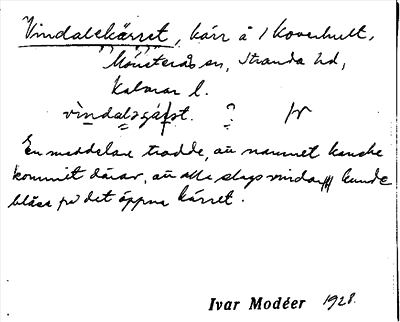 Vindalskärret, kärr å 1 Koverhult,
Mönsterås sn, Stranda hd,
Kalmar l.
vindalsgá̈st. ?
En meddelare trodde, att namnet kanske
kommit därav, att alla slags vindar kunde
blåsa på det öppna kärret.
Ivar Modéer 1928.